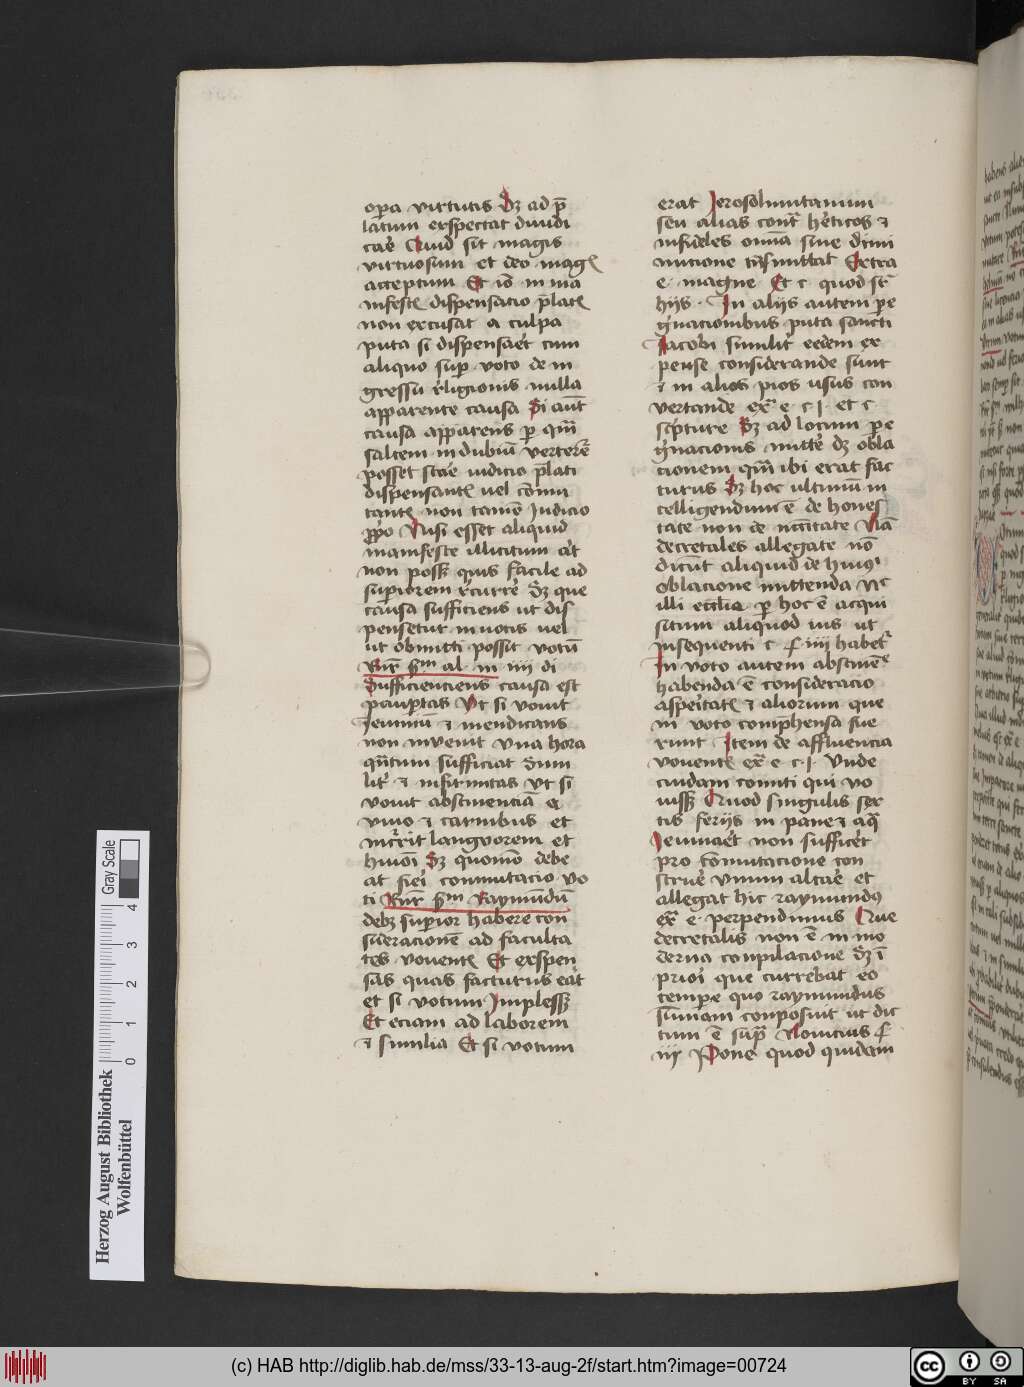 opera virtutis Sꝫ ad p̄
latum exspectat diiudi
care Quid sit magis
virtuosum et deo magꝭ
acceptum Et iō in ma
nifestꝭ dispensacio p̄latꝭ
non excusat a culpa
puta si dispensaēt cum
aliquo sup voto de in
gressu religionis nulla
apparente causa Si aūt
causa apparens ꝑ qm̄
saltem in dubiū verterēt
posset stāe iudicio p̄lati
dispensantꝭ vel cōmu
tantꝭ non tamē Iudicio
ꝓprio Nisi esset aliquid
manifeste illicitum at̄
non possꝫ quis facile ad
superiorem rēcurrē Sꝫ que
causa sufficiens ut dis
pensetur in votis vel
ut obmitti possit votū
Rn̄r scd̄m al in iiii di
Sufficienciens causa est
paupertas Vt si vouit
Ieiuniū ⁊ mendicans
non invenit una hora
qn̄tum sufficiat Simi
lit̄ ⁊ infirmitas Vt si
vouit abstinenciā a
vino ⁊ carnibus et
incurrit languorem et
hm̄oi Sꝫ quomō debe
at fieri conmutacio vo
ti Rn̄r scd̄m Raymūdū
debꝫ superior habere con
sideracionē ad faculta
tes voventꝭ Et exspen
sas quas facturus erāt
et si votum Implessꝫ
Et eciam ad laborem
⁊ similia Et si votum
erat Ierosolimitanum
seu alias cont̄ hēticos ⁊
infideles om̄ia sine dimi
nucione trāsmittat Extra
e magne Et c quod sꝉ
hijs In alijs autem pe
gͥnacionibus puta sancti
Iacobi similit̄ eedem ex
pense considerande sunt
⁊ in alios pios usus con
vertande exᵃ e c j et c
scͥpture Sꝫ ad locum pe
gͥnacionis mittē dꝫ obla
cionem qm̄ ibi erat fac
turus Sꝫ hoc ultimū in
telligendum ē de hones
tate non de nc̄citate Nā
decretales allegate nō
dicūt aliquid de huiꝰ
oblacione mittenda Nᶜ
illi ecclīa ꝑ hoc ē acqui
situm aliquod ius ut
insequenti c § iiii habet
In voto autem abstinēe
habenda ē consideracio
aspeͥtatꝭ ⁊ aliorum que
in voto comp̄hensa fue
runt Item de affluencia
voventꝭ exᵃ e c j Unde
cuidam comiti qui vo
vissꝫ Quod singulis sex
tis ferijs in pane ⁊ aqͣ
Ieiunaēt non sufficēt
pro cōmutacione con
struē unum altāe et
allegat hic raymundꝰ
exᵃ e perpendimus Que
decretalis non ē in mo
derna conpilacione Sꝫ ī
prioͥ que currebat eo
tempe quo raymundus
sūmam conposuit ut dic̄
tum ē supᵃ Nouicius §
iij Pone quod quidam
Herzog August Bibliothek
Wolfenbüttel
Gray Scale
0 1 2 3 4
(c) HAB http://diglib.hab.de/mss/33-13-aug-2f/start.htm?image=00724
cc BY SA